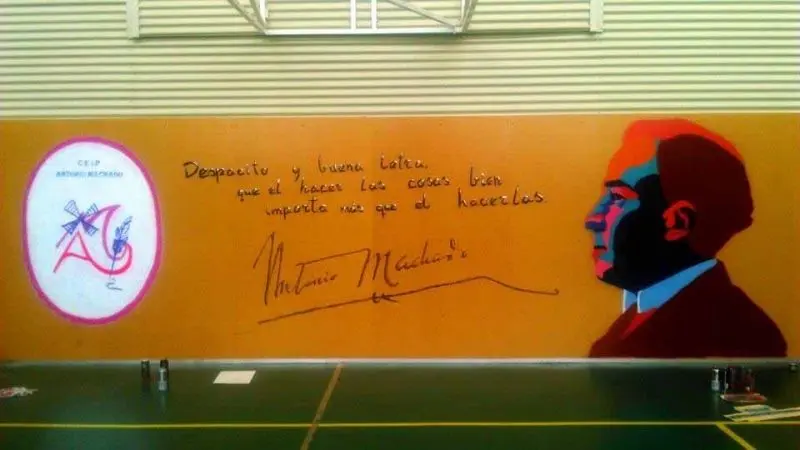 C.E.I.P
ANTONIO MACHADO
Despacito y buena letra,
que el hacer las cosas bien
importa más que el hacerlas.
Antonio Machado